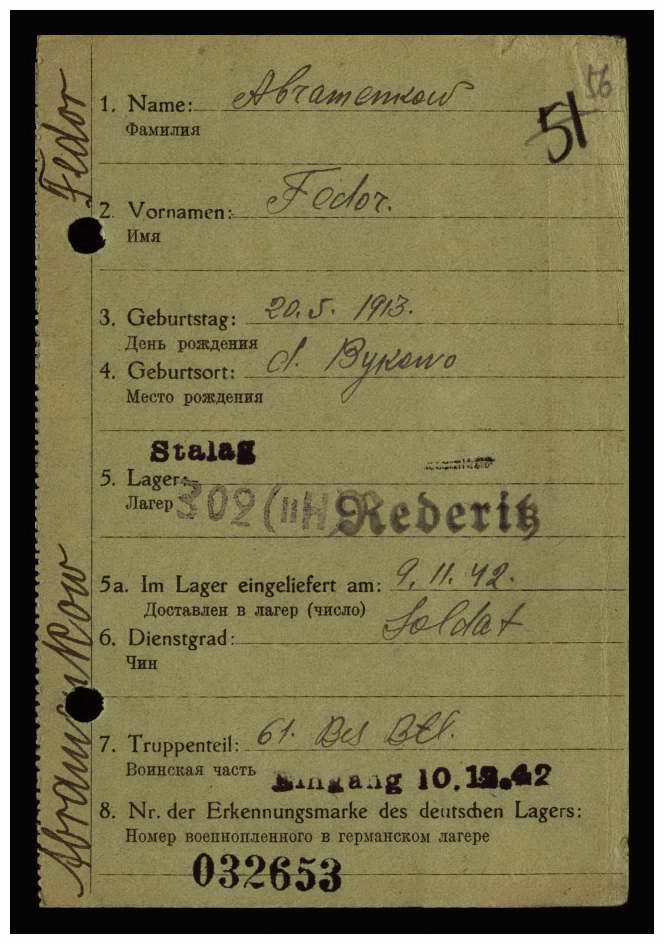 56
51
1. Name: Abramenkow
Фамилия
2. Vornamen: Fedor.
Имя
3. Geburtstag: 20.5. 1913.
День рождения
4. Geburtsort: d. Bykowo
Место рождения
Stalag
5. Lager:
Лагер
302 (II H) Rederitz
5a. Im Lager eingeliefert am: 9.11.42.
Доставлен в лагер (число)
6. Dienstgrad: Soldat
Чин
7. Truppenteil: 61. Bes Btl.
Воинская часть
Eingang 10.12.42
8. Nr. der Erkennungsmarke des deutschen Lagers:
Номер военнопленного в германском лагере
032653
Abramenkow Fedor